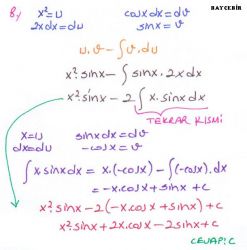 BAYCEBİR
8) x²=u cosx dx=dv
2x dx=du sinx=v
u.v-∫v.du
x².sinx-∫sinx.2x dx
x².sinx-2∫x.sinx dx
TEKRAR KISMİ
x=u sinx dx=dv
dx=du -cosx=v
∫x.sinx dx = x.(-cosx)-∫(-cosx).dx
=-x.cosx+sinx+c
x².sinx-2(-x.cosx+sinx)+c
x².sinx+2x.cosx-2sinx+c
CEVAP: C